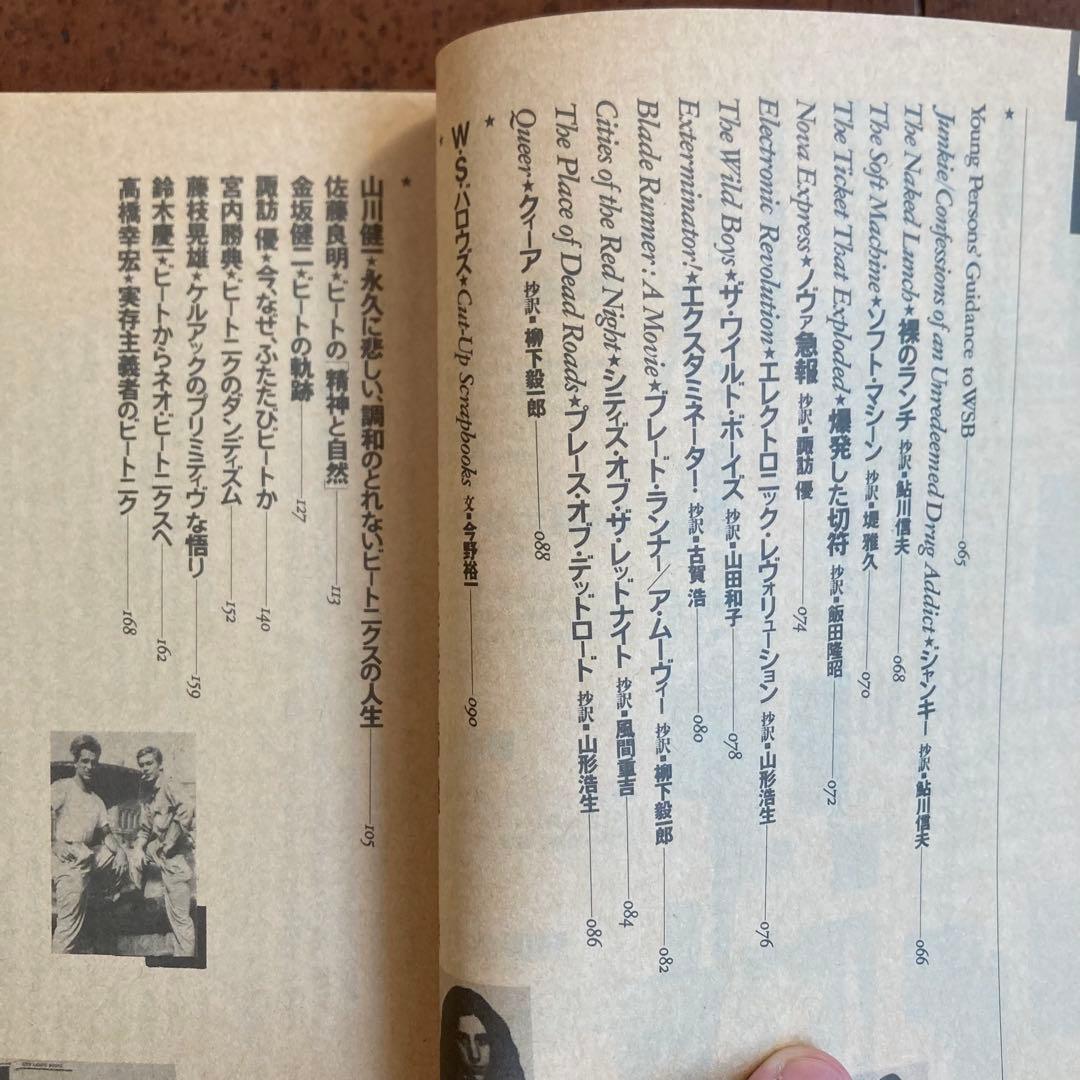 ★
Young Persons' Guidance to WSB 065
Junkie/Confessions of an Unredeemed Drug Addict★ジャンキー 抄訳■鮎川信夫 066
The Naked Lunch★裸のランチ 抄訳■鮎川信夫 068
The Soft Machine★ソフト・マシーン 抄訳■堤 雅久 070
The Ticket That Exploded★爆発した切符 抄訳■飯田隆昭 072
Nova Express★ノヴァ急報 抄訳■諏訪 優 074
Electronic Revolution★エレクトロニック・レヴォリューション 抄訳■山形浩生 076
The Wild Boys★ザ・ワイルド・ボーイズ 抄訳■山田和子 078
Exterminator!★エクスタミネーター! 抄訳■古賀 浩 080
Blade Runner: A Movie★ブレードランナー/ア・ムーヴィー 抄訳■柳下毅一郎 082
Cities of the Red Night★シティズ・オブ・ザ・レッドナイト 抄訳■風間重吉 084
The Place of Dead Roads★プレース・オブ・デッドロード 抄訳■山形浩生 086
Queer★クィーア 抄訳■柳下毅一郎 088
★
W・S・バロウズ★Cut-Up Scrapbooks 文■今野裕一 090
★
山川健一★永久に悲しい、調和のとれないビートニクスの人生 105
佐藤良明★ビートの「精神と自然」 113
金坂健二★ビートの軌跡 127
諏訪 優★今、なぜ、ふたたびビートか 140
宮内勝典★ビートニクのダンディズム 152
藤枝晃雄★ケルアックのプリミティヴな悟り 159
鈴木慶一★ビートからネオ・ビートニクスへ 162
高橋幸宏★実存主義者のビートニク 168